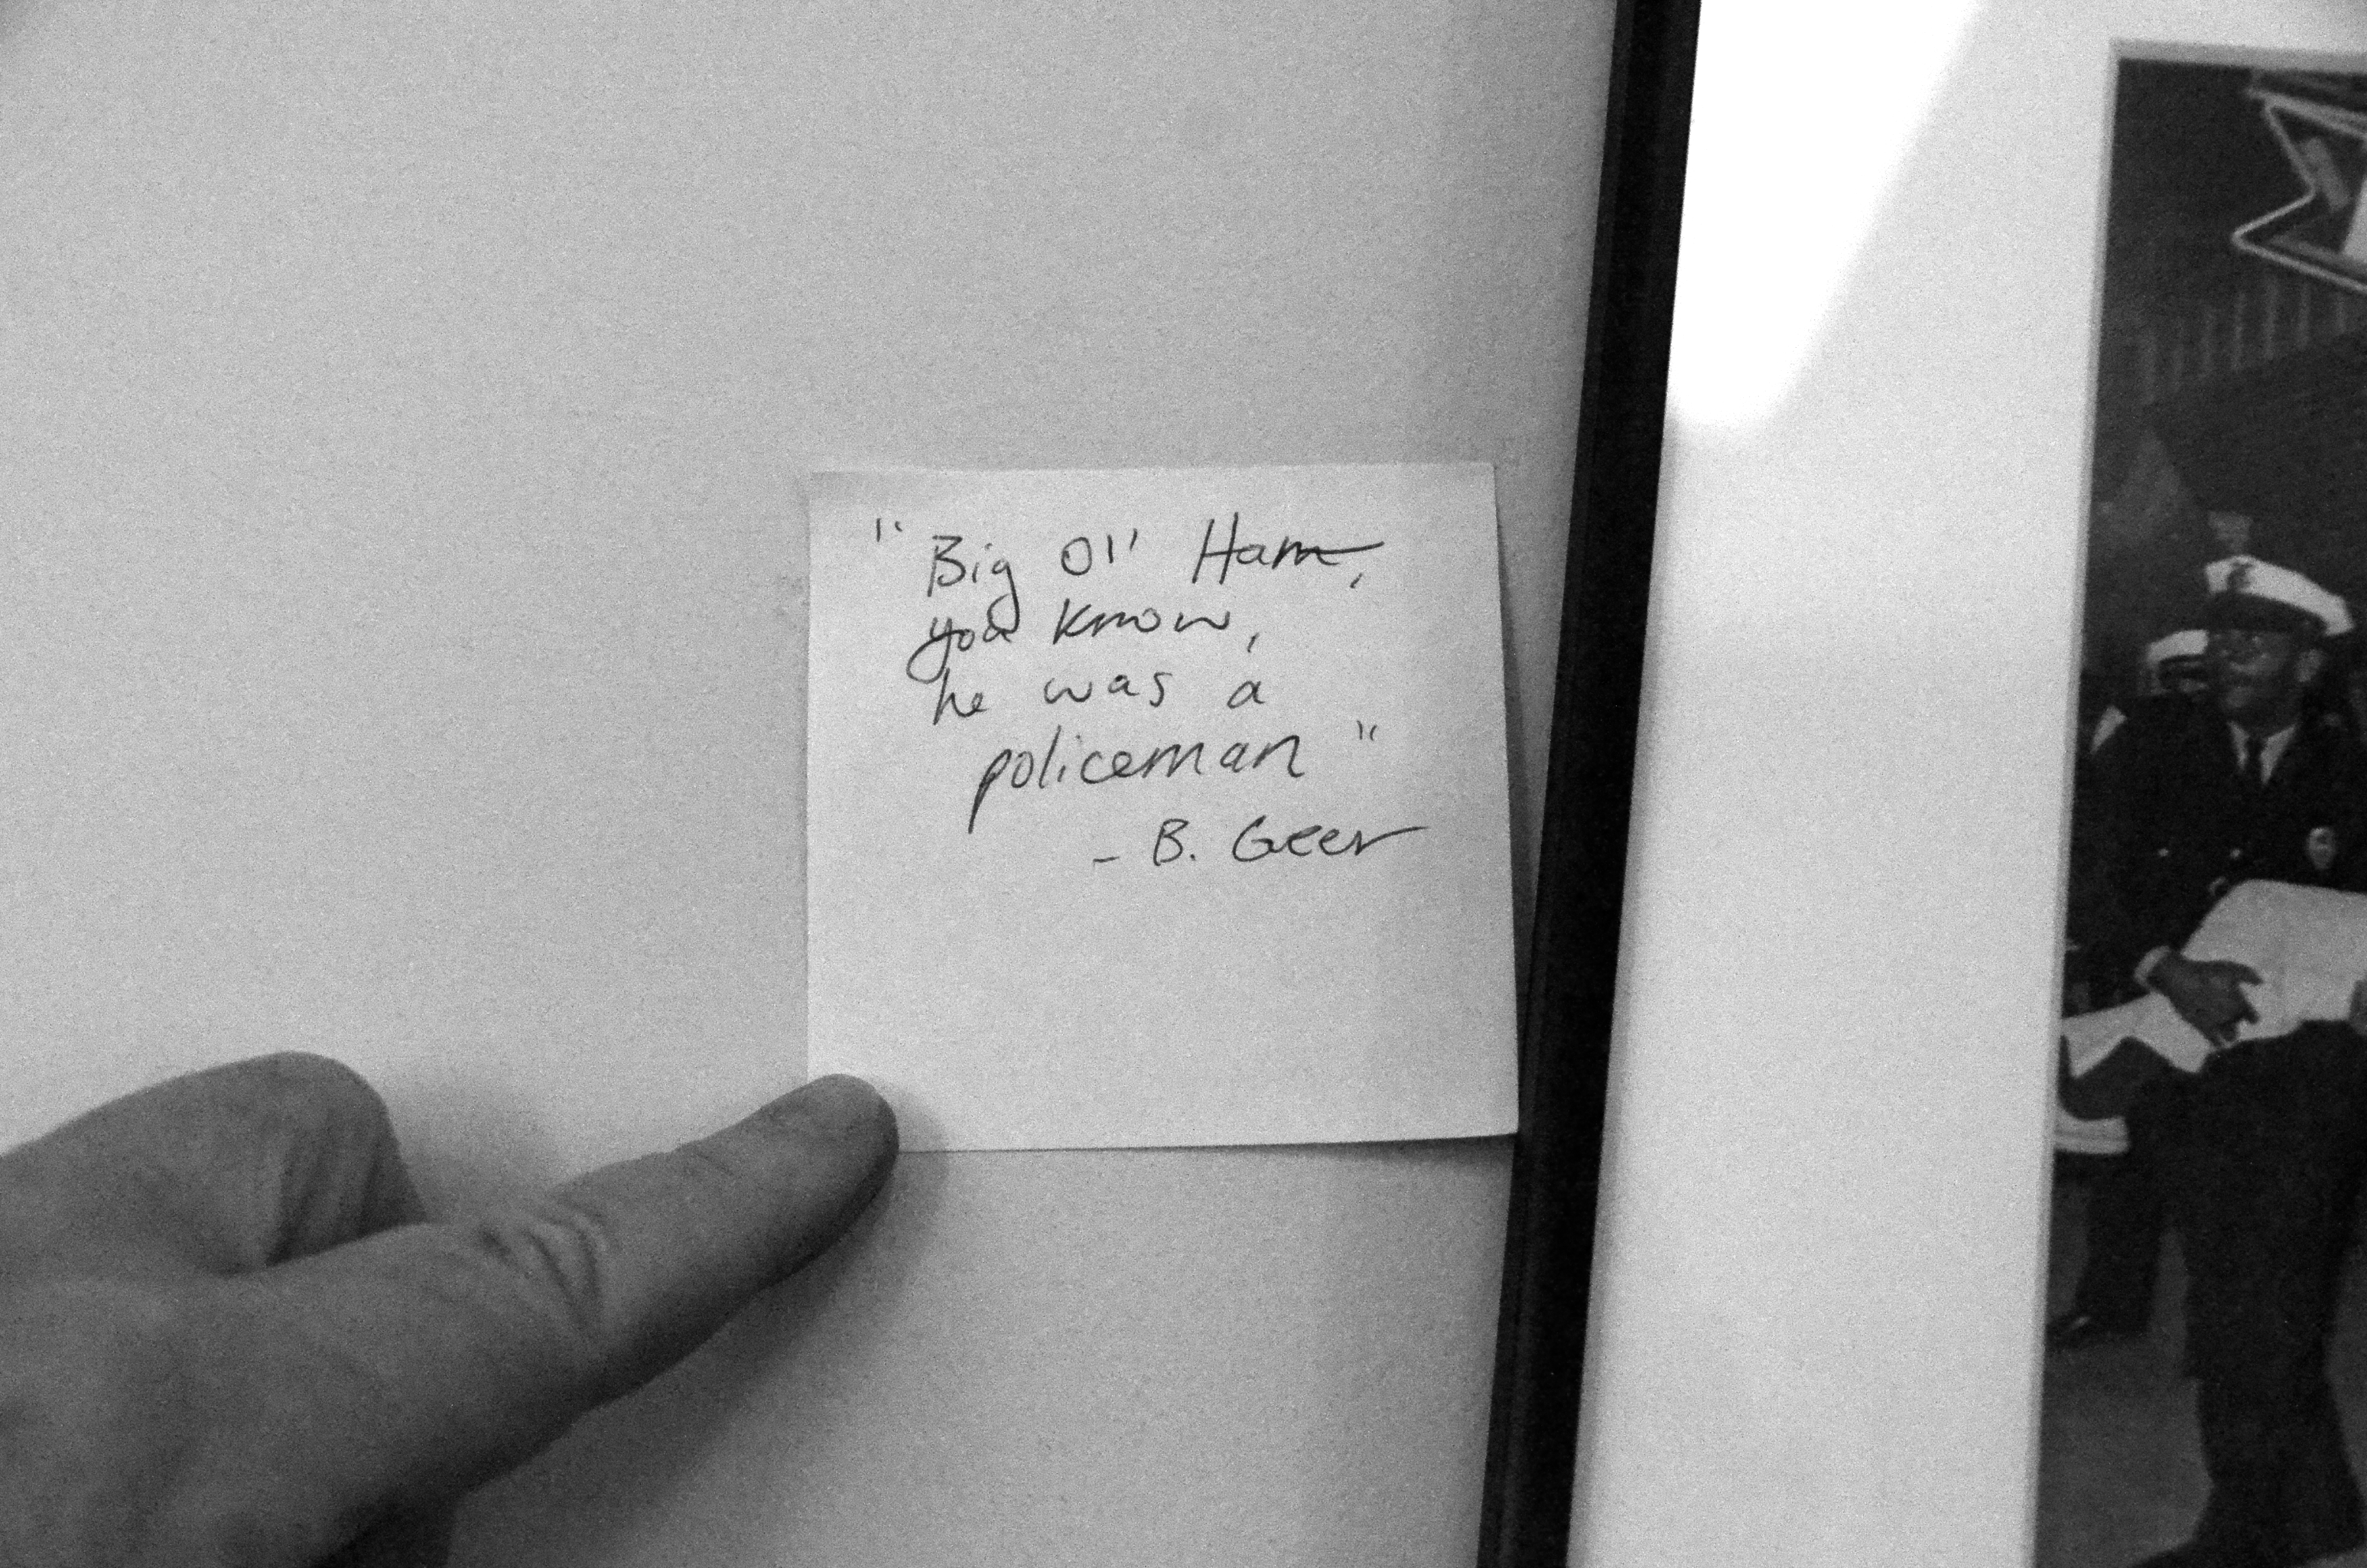 "Big Ol' Ham,
you know,
he was a
policeman"
- B. Geer